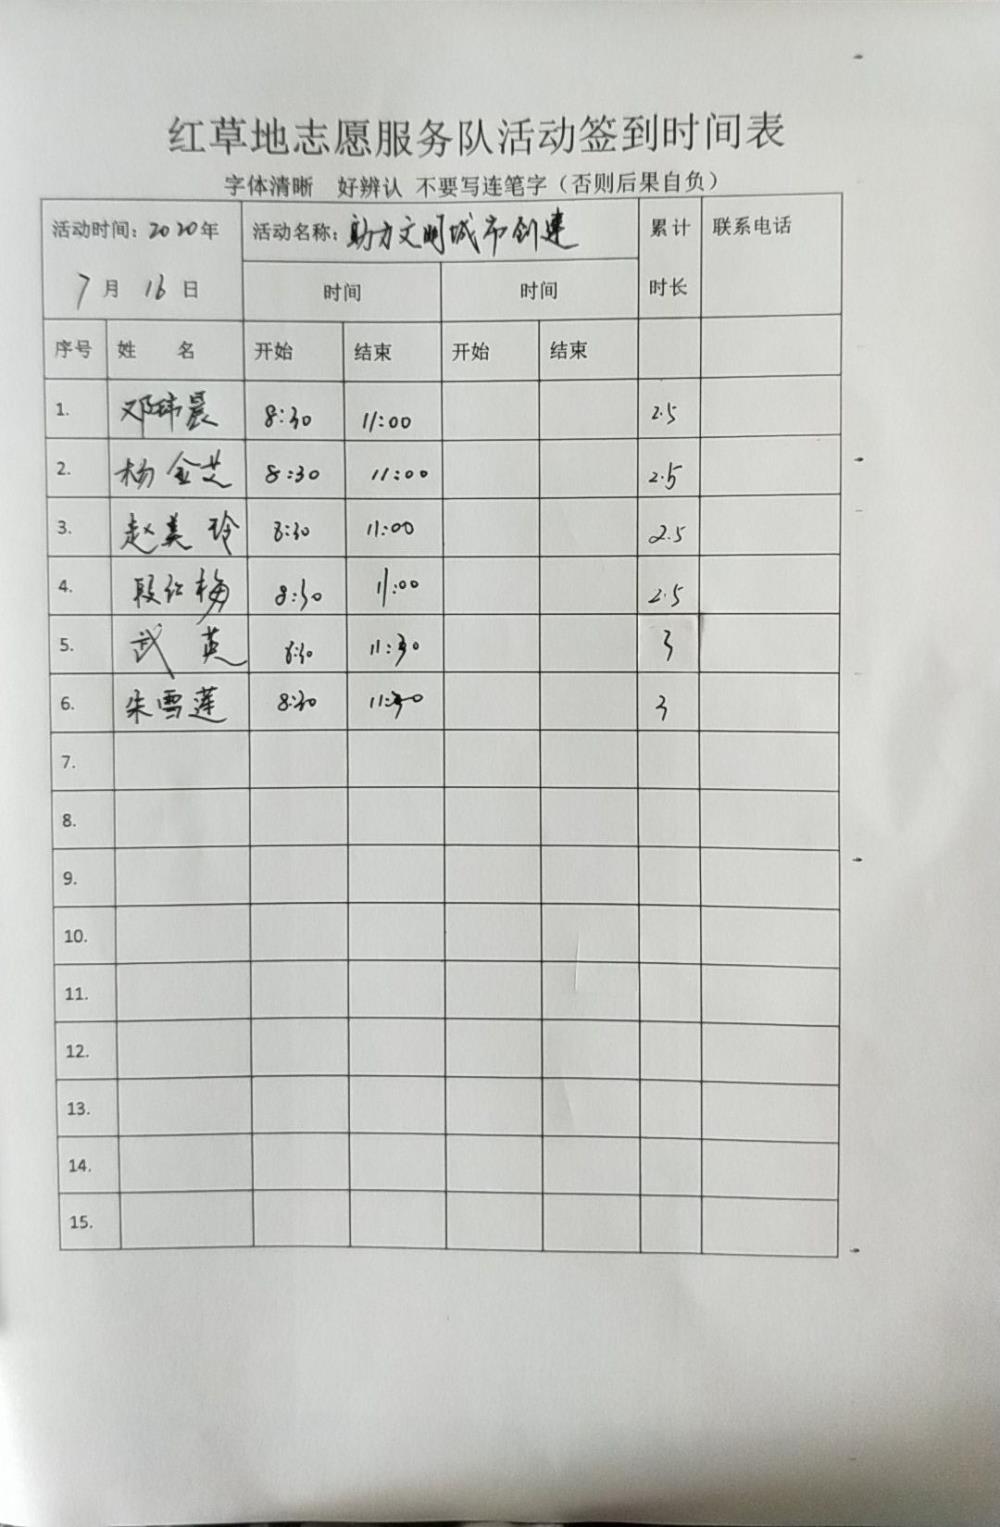 红草地志愿服务队活动签到时间表
字体清晰 好辨认 不要写连笔字（否则后果自负）
活动时间：2020年 活动名称：助力文明城市创建 累计 联系电话
7月 16日 时间 时间 时长
序号 姓 名 开始 结束 开始 结束
1. 邓玮晨 8:30 11:00 2.5
2. 杨金芝 8:30 11:00 2.5
3. 赵美玲 8:30 11:00 2.5
4. 段红梅 8:30 11:00 2.5
5. 武英 8:30 11:30 3
6. 朱雪莲 8:30 11:30 3
7.
8.
9.
10.
11.
12.
13.
14.
15.